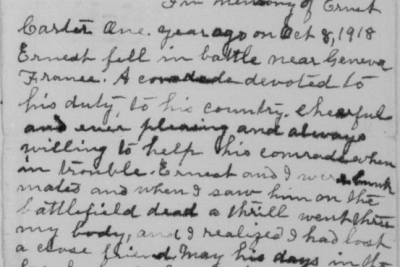 In memory of Ernest
Carter One. year ago on Oct 8, 1918
Ernest fell in battle near Geneva
France. A comrade devoted to
his duty, to his country. Chearful
and ever pleasing and always
willing to help his comrade when
in trouble. Ernest and I were bunk
mates and when I saw him on the
battlefield dead a thrill went thru
my body, and I realized I had lost
a close friend. May his days in the